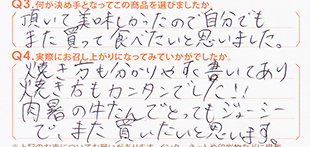 Q3.何が決め手となってこの商品を選びましたか。
頂いて美味しかったので自分でも
また買って食べたいと思いました。
Q4.実際にお召し上がりになってみていかがでしたか。
焼き方も分かりやすく書いてあり
焼き方もカンタンでした!!
肉厚の牛たんでとってもジューシー
で、また買いたいと思います。